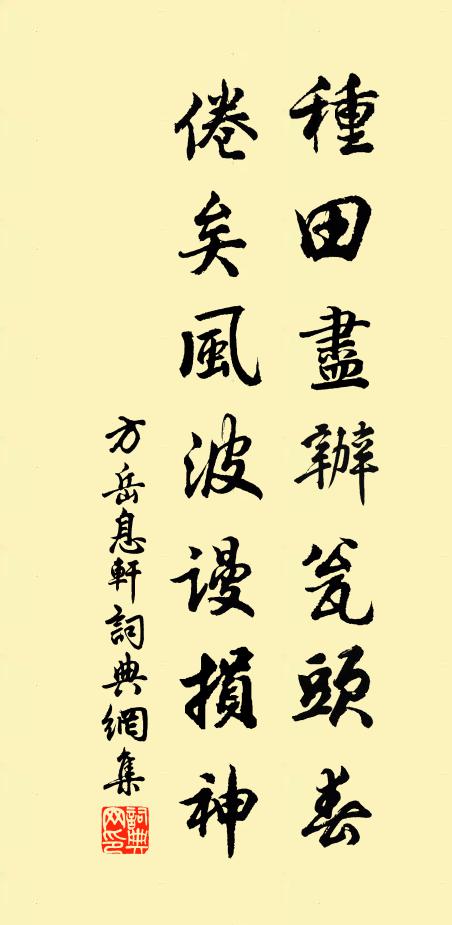 種田盡辦瓮頭春
倦矣風波謾損神
方岳息軒詞典網集
詞典網印